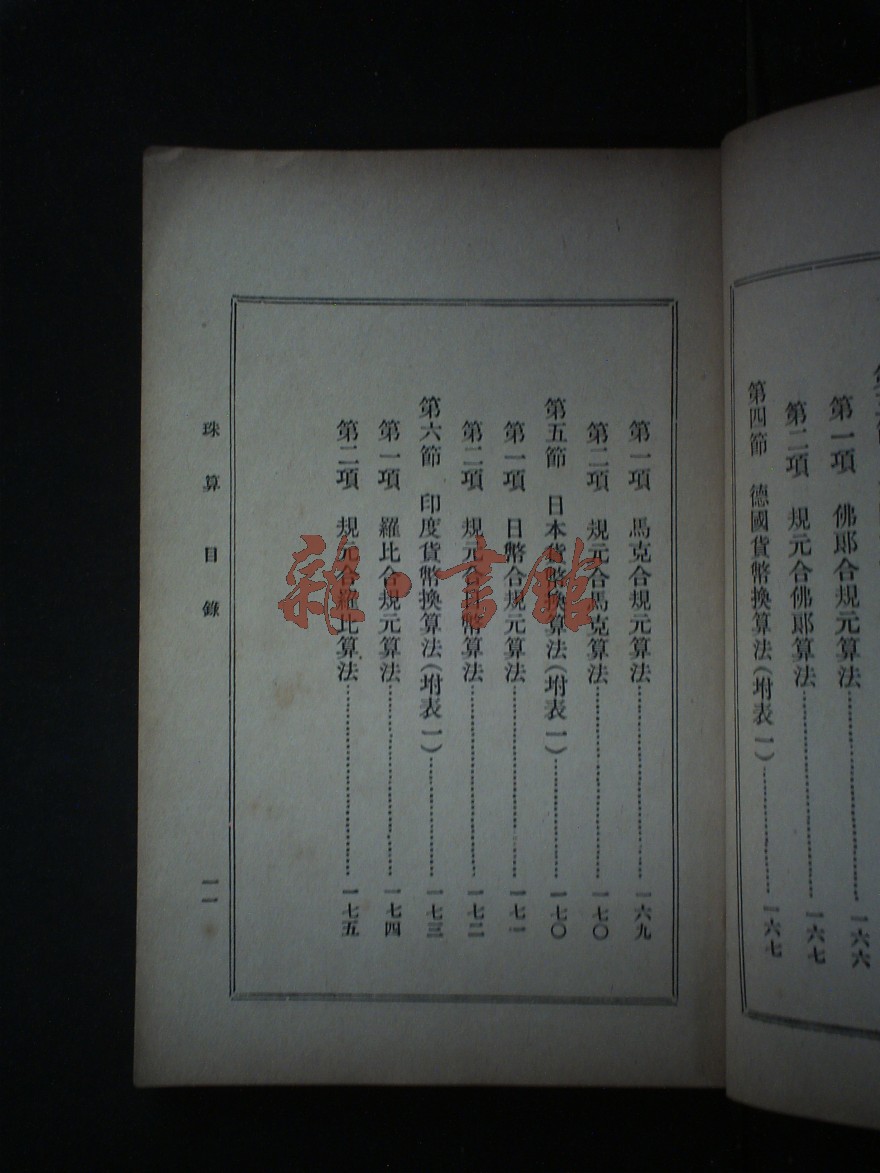 第一項　佛郎合規元算法……一六六
第二項　規元合佛郎算法……一六七
第四節　德國貨幣換算法(坿表一)……一六七
第一項　馬克合規元算法……一六九
第二項　規元合馬克算法……一七〇
第五節　日本貨幣換算法(坿表一)……一七〇
第一項　日幣合規元算法……一七一
第二項　規元合日幣算法……一七二
第六節　印度貨幣換算法(坿表一)……一七三
第一項　羅比合規元算法……一七四
第二項　規元合羅比算法……一七五
珠算目錄　一一
雜·書館